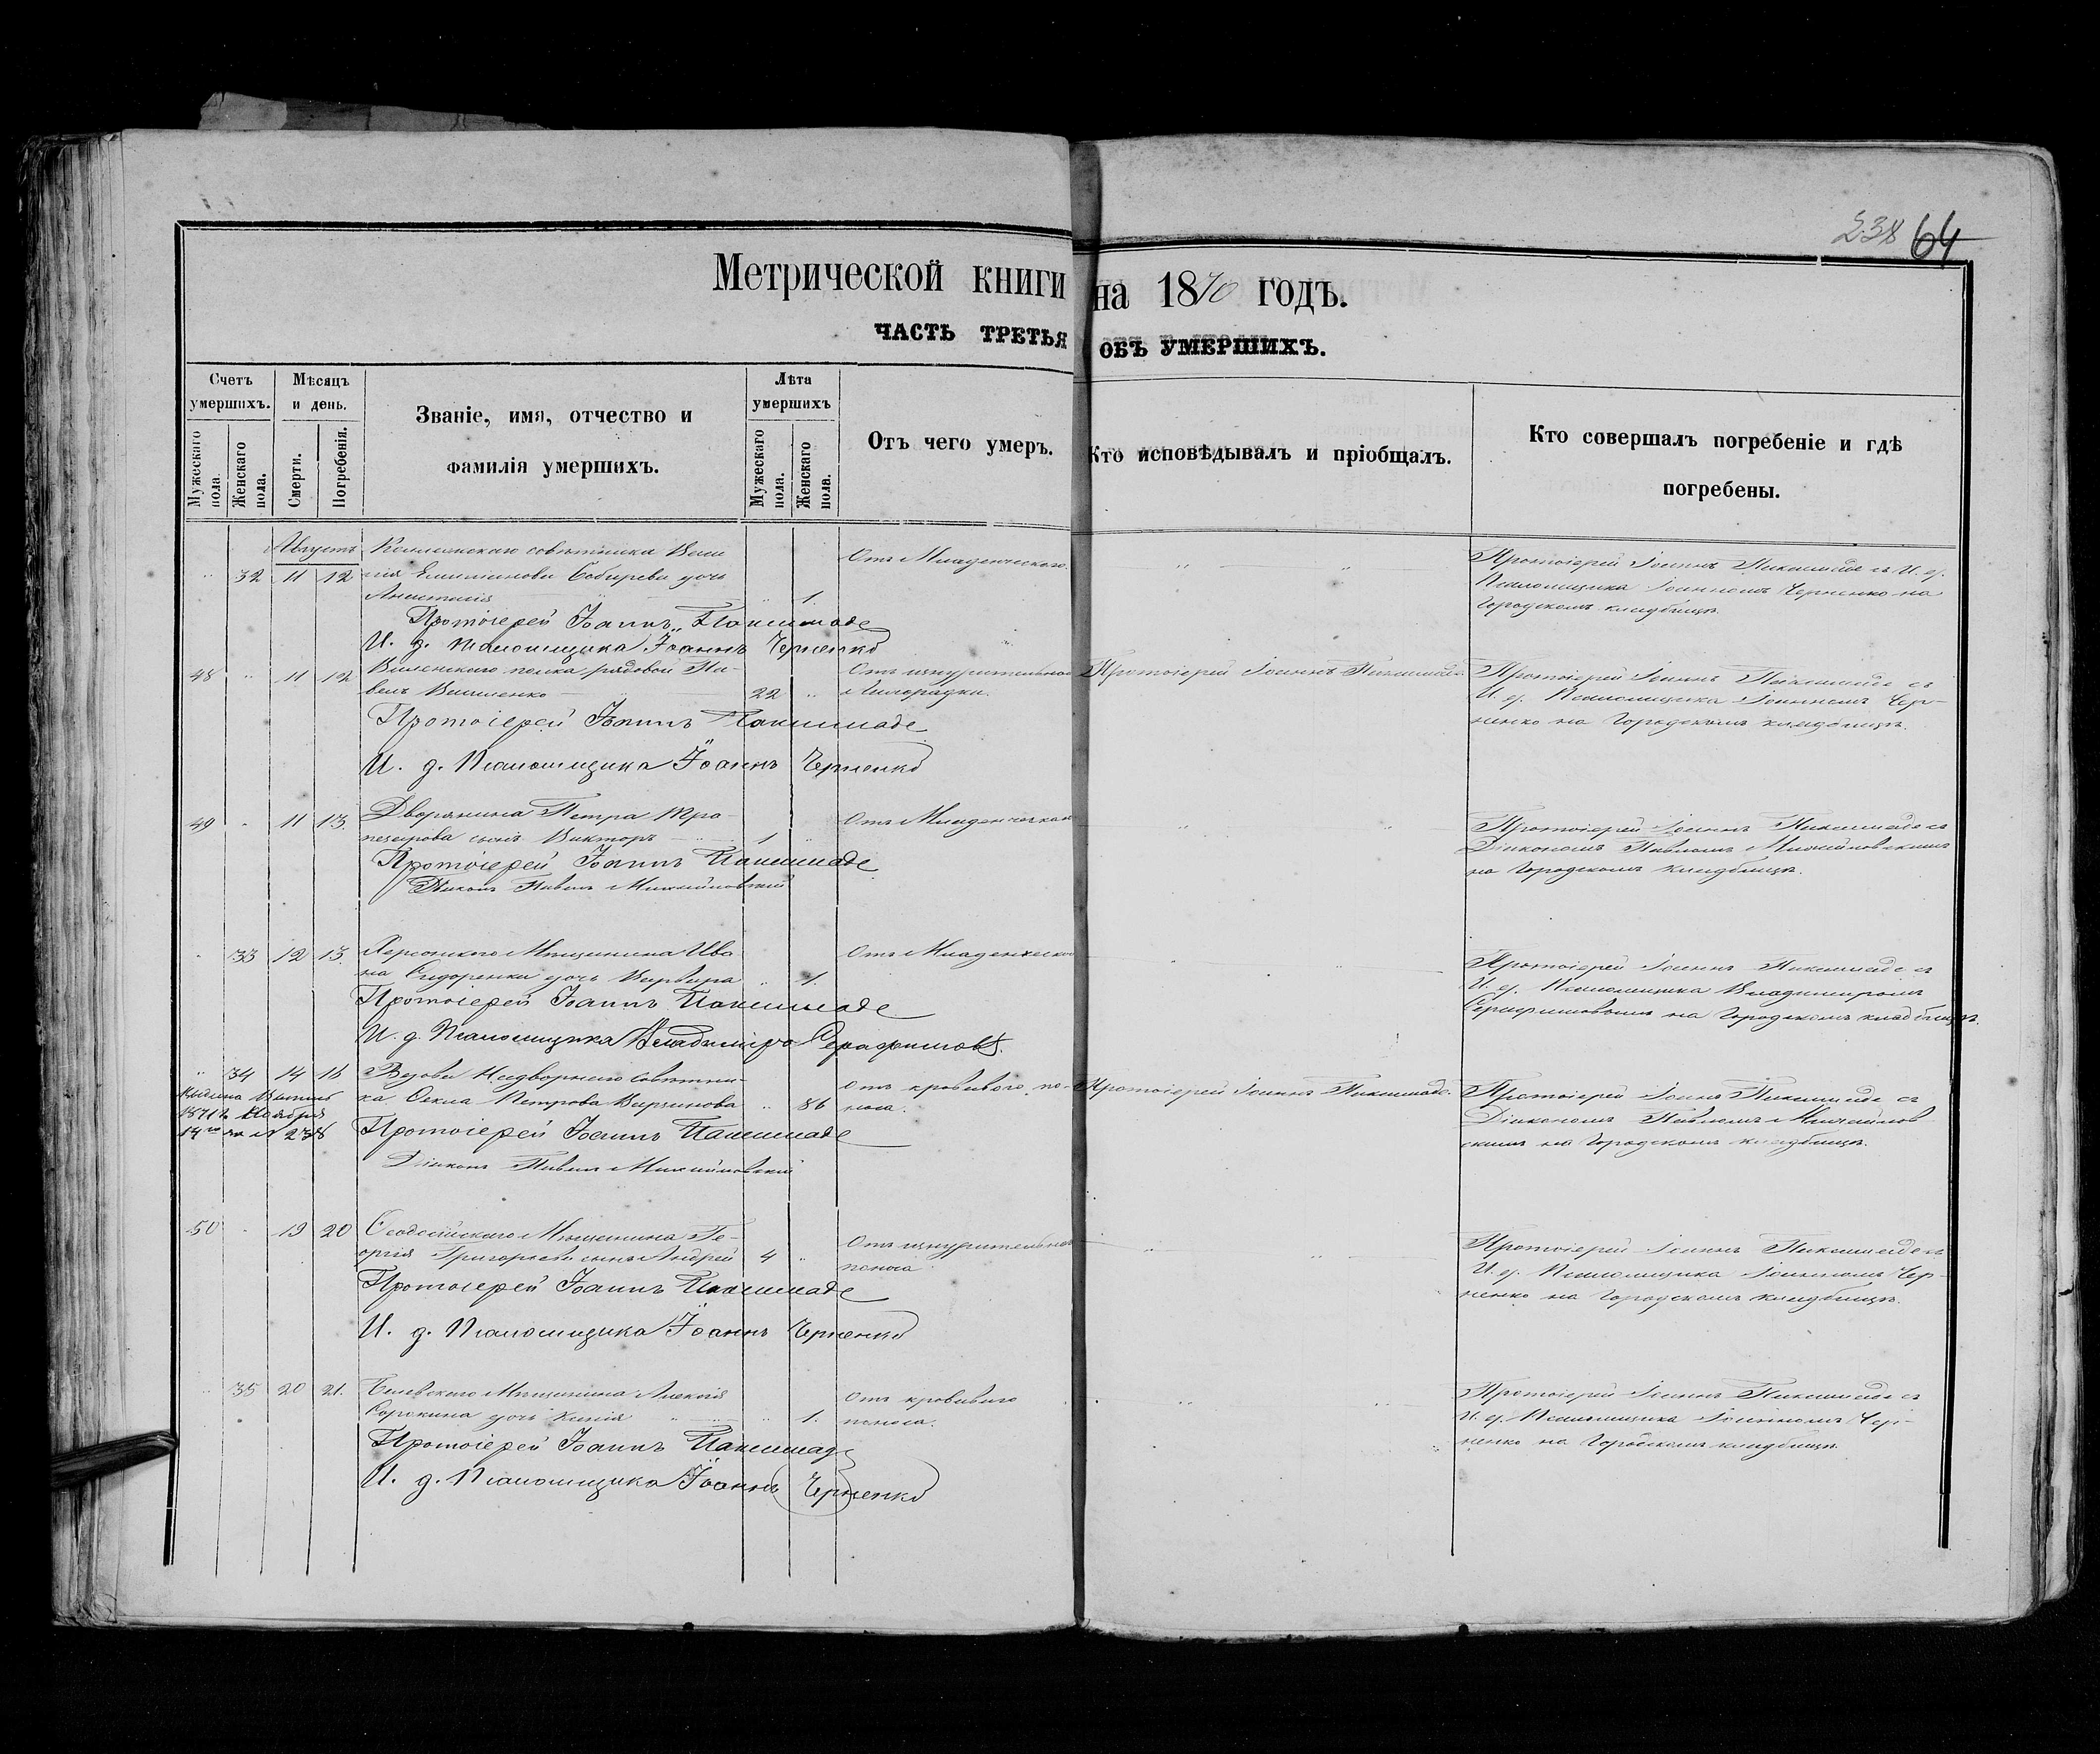 238 64
Метрической книги на 1870 годъ.
ЧАСТЬ ТРЕТЬЯ ОБЪ УМЕРШИХЪ.
Счетъ умершихъ.
Мужескаго пола.
Женскаго пола.
Мѣсяцъ и день.
Смерти.
Погребенія.
Званіе, имя, отчество и
фамилія умершихъ.
Лѣта умершихъ
Мужескаго пола.
Женскаго пола.
Отъ чего умеръ.
Кто исповѣдывалъ и пріобщалъ.
Кто совершалъ погребеніе и гдѣ
погребены.
Августъ совѣтника Васи Отъ Младенческаго Протоіерей Іоаннъ Пакшмаде съ И. д.
" 32 11 12 лія дочь Псаломщика Іоанномъ Черненко на
Анастасія " 1. Городскомъ кладбищѣ.
Протоіерей Іоаннъ Пакшмаде
И. д. Псаломщика Іоаннъ Черненко
48 " 11 12 Виленскаго полка рядовой Па- Отъ изнурительной Протоіерей Іоаннъ Пакшмаде Протоіерей Іоаннъ Пакшмаде съ
велъ Василенко 22 " Лихорадки. И. д. Псаломщика Іоанномъ Чер-
ненко на Городскомъ кладбищѣ.
Протоіерей Іоаннъ Пакшмаде
И. д. Псаломщика Іоаннъ Черненко
49 " 11 13. Дворянина Петра Тра- Отъ Младенческаго Протоіерей Іоаннъ Пакшмаде съ
пезарова сынъ Викторъ 1 " Діакономъ Павломъ Михайловскимъ
на Городскомъ кладбищѣ.
Протоіерей Іоаннъ Пакшмаде
Діаконъ Павелъ Михайловскій
" 33 12 13. Херсонскаго Мѣщанина Ива Отъ Младенческаго Протоіерей Іоаннъ Пакшмаде съ
на Сидоренки дочь Варвара " 1. И. д. Псаломщика Владиміромъ
Серафимовымъ на Городскомъ кладбищѣ.
Протоіерей Іоаннъ Пакшмаде
И. д. Псаломщика Владиміръ Серафимовъ.
" 34 14 16 Вдова Надворнаго Совѣтни- Отъ кроваваго по- Протоіерей Іоаннъ Пакшмаде. Протоіерей Іоаннъ Пакшмаде съ
ка Ѳекла Петрова " 86 носа. Діакономъ Павломъ Михайлов
скимъ на Городскомъ кладбищѣ.
1871 г. Ноября
14го за № 238
Протоіерей Іоаннъ Пакшмаде
Діаконъ Павелъ Михайловскій
50 " 19 20 Ѳеодосійскаго Мѣщанина Ге- Отъ изнурительнаго Протоіерей Іоаннъ Пакшмаде съ
оргія Григорьева сынъ Андрей 4 " поноса И. д. Псаломщика Іоанномъ Чер-
ненко на Городскомъ кладбищѣ.
Протоіерей Іоаннъ Пакшмаде
И. д. Псаломщика Іоаннъ Черненко
" 35 20 21. Белевскаго Мѣщанина Алексія Отъ кроваваго Протоіерей Іоаннъ Пакшмаде съ
Сорокина дочь Ксенія " 1. поноса. И. д. Псаломщика Іоанномъ Чер-
ненко на Городскомъ кладбищѣ.
Протоіерей Іоаннъ Пакшмаде
И. д. Псаломщика Іоаннъ Черненко